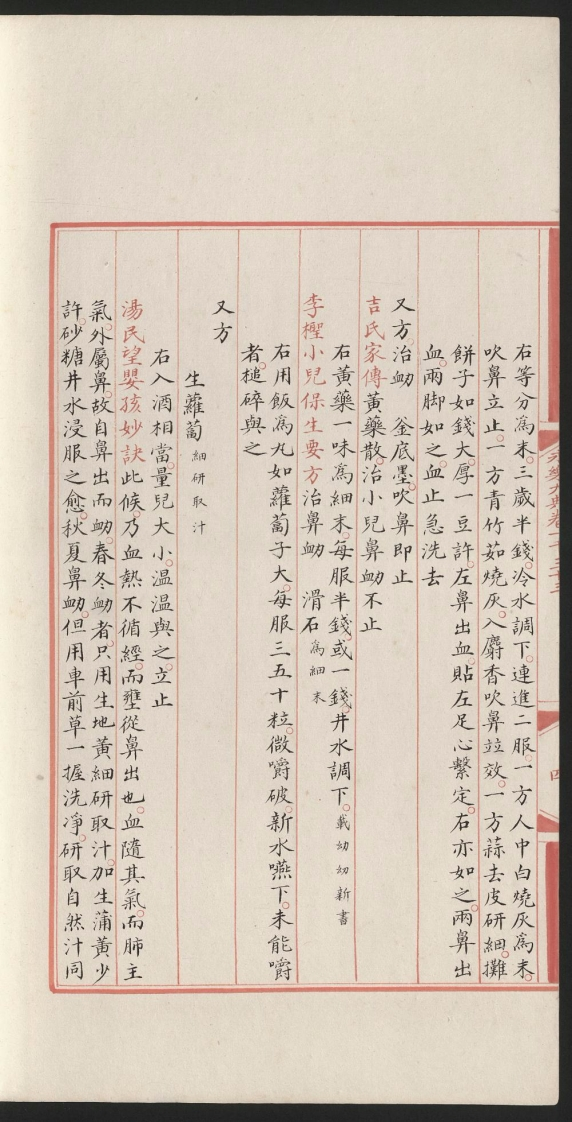 右等分爲末三歲半錢冷水調下連進二服一方人中白燒灰爲末
吹鼻立止一方青竹茹燒灰入麝香吹鼻竝效一方蒜去皮研細攤
餅子如錢大厚一豆許左鼻出血貼左足心繫定右亦如之兩鼻出
血兩脚如之血止急洗去
又方治衂 釜底墨吹鼻即止
吉氏家傳黃藥散治小兒鼻衂不止
右黃藥一味爲細末每服半錢或一錢井水調下載幼幼新書
李檉小兒保生要方治鼻衂 滑石爲細末
右用飯爲丸如蘿蔔子大每服三五十粒微嚼破新水嚥下未能嚼
者槌碎與之
又方
生蘿蔔細研取汁
右入酒相當量兒大小温温與之立止
湯民望嬰孩妙訣此候乃血熱不循經而壅從鼻出也血隨其氣而肺主
氣外屬鼻故自鼻出而衂春冬衂者只用生地黃細研取汁加生蒲黃少
許砂糖井水浸服之愈秋夏鼻衂但用車前草一握洗凈研取自然汁同